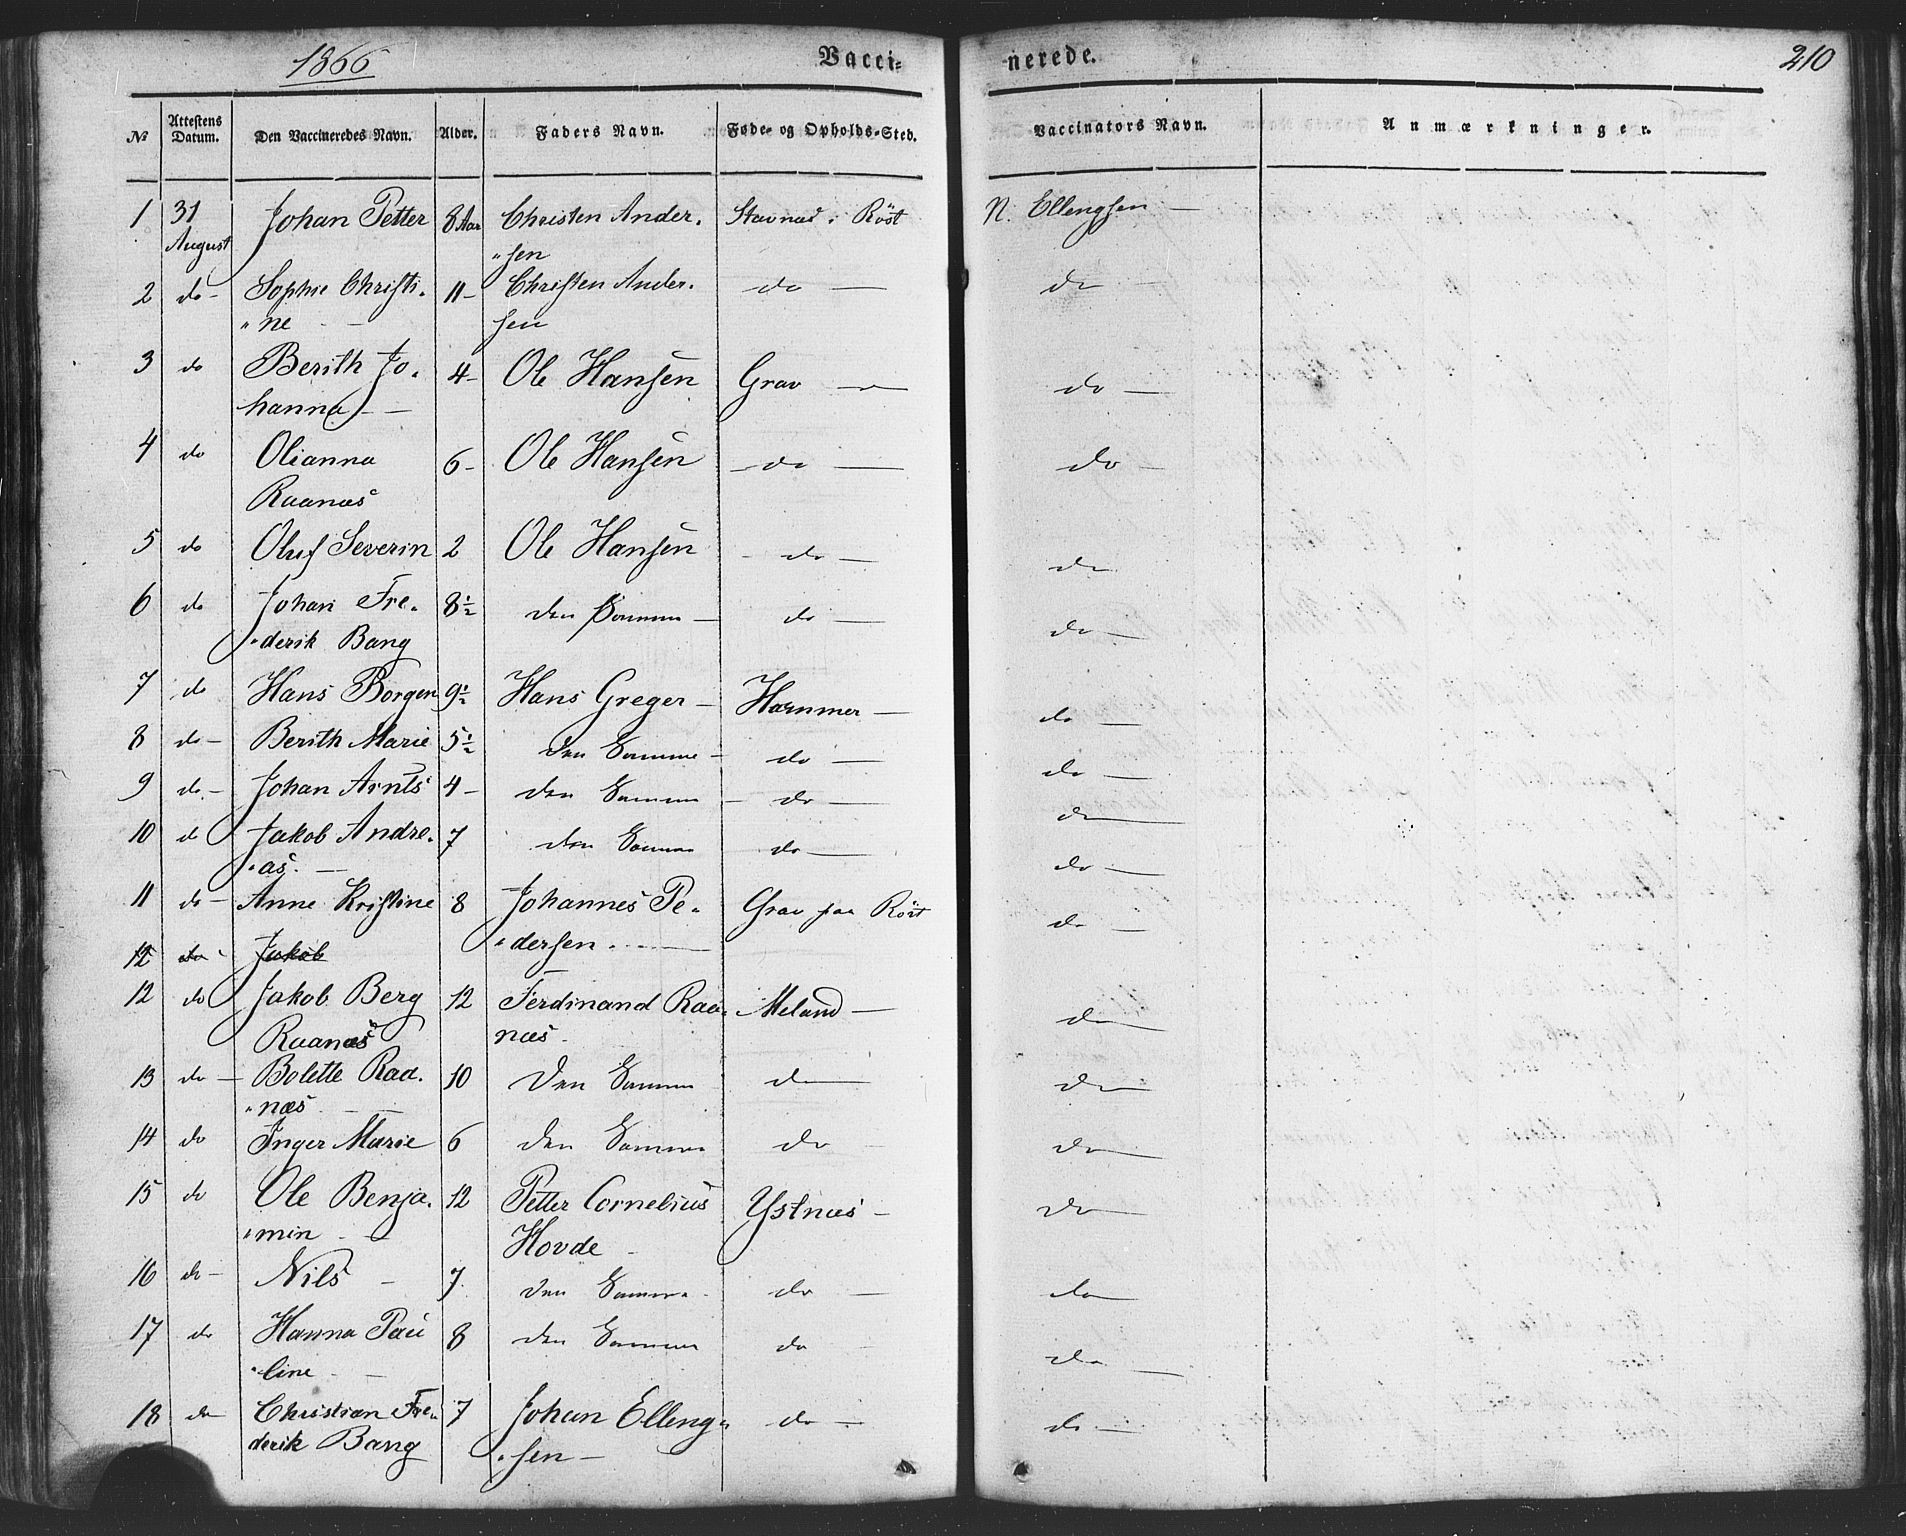 1866 Vacci- nerede. 210
No Attestens Datum. Den Vaccineredes Navn. Alder. Faders Navn. Føde- og Opholds-Sted. Vaccinators Navn. Anmærkninger.
1 31 August Johan Petter 8 Aar Christen Ander- Stavnæs i Röst N. Ellengsen —
"sen
2 do - Sophie Christi- 11 - Christen Ander- do — do —
"ne — sen
3 do Berith Jo- 4 - Ole Hansen Grav — do —
hanna —
4 do Olianna 6 - Ole Hansen - do — do —
Raanæs
5 do Oluf Severin 2 Ole Hansen - do — do
6 do Johan Fre- 8½ den Samme — do — do —
"derik Bang
7 do Hans Borgen 9½ Hans Greger — Hammer — do —
8 do - Berith Marie 5½ den Samme - do — do —
9 do - Johan Arnts 4 - den Samme - do — do —
10 do Jakob Andre- 7 den Samme do — do —
"as. —
11 do - Anne Kristine 8 Johannes Pe- Grav paa Röst do —
"dersen
12 do Jakob
12 do Jakob Berg 12 Ferdinand Raa- Meland — do —
Raanæs næs.
13 do — Bolette Raa- 10 Den Samme do — do —
"næs
14 do Inger Marie 6 den Samme do - do —
15 do Ole Benja- 12 Petter Cornelius Ystnæs - do —
"min - Hovde -
16 do - Nils - 7. den Samme do - do
17 do Hanna Pau 8 den Samme do - do —
"line -
18 do Christian Fre- 7 Johan Elleng- do - do —
derik Bang "sen —